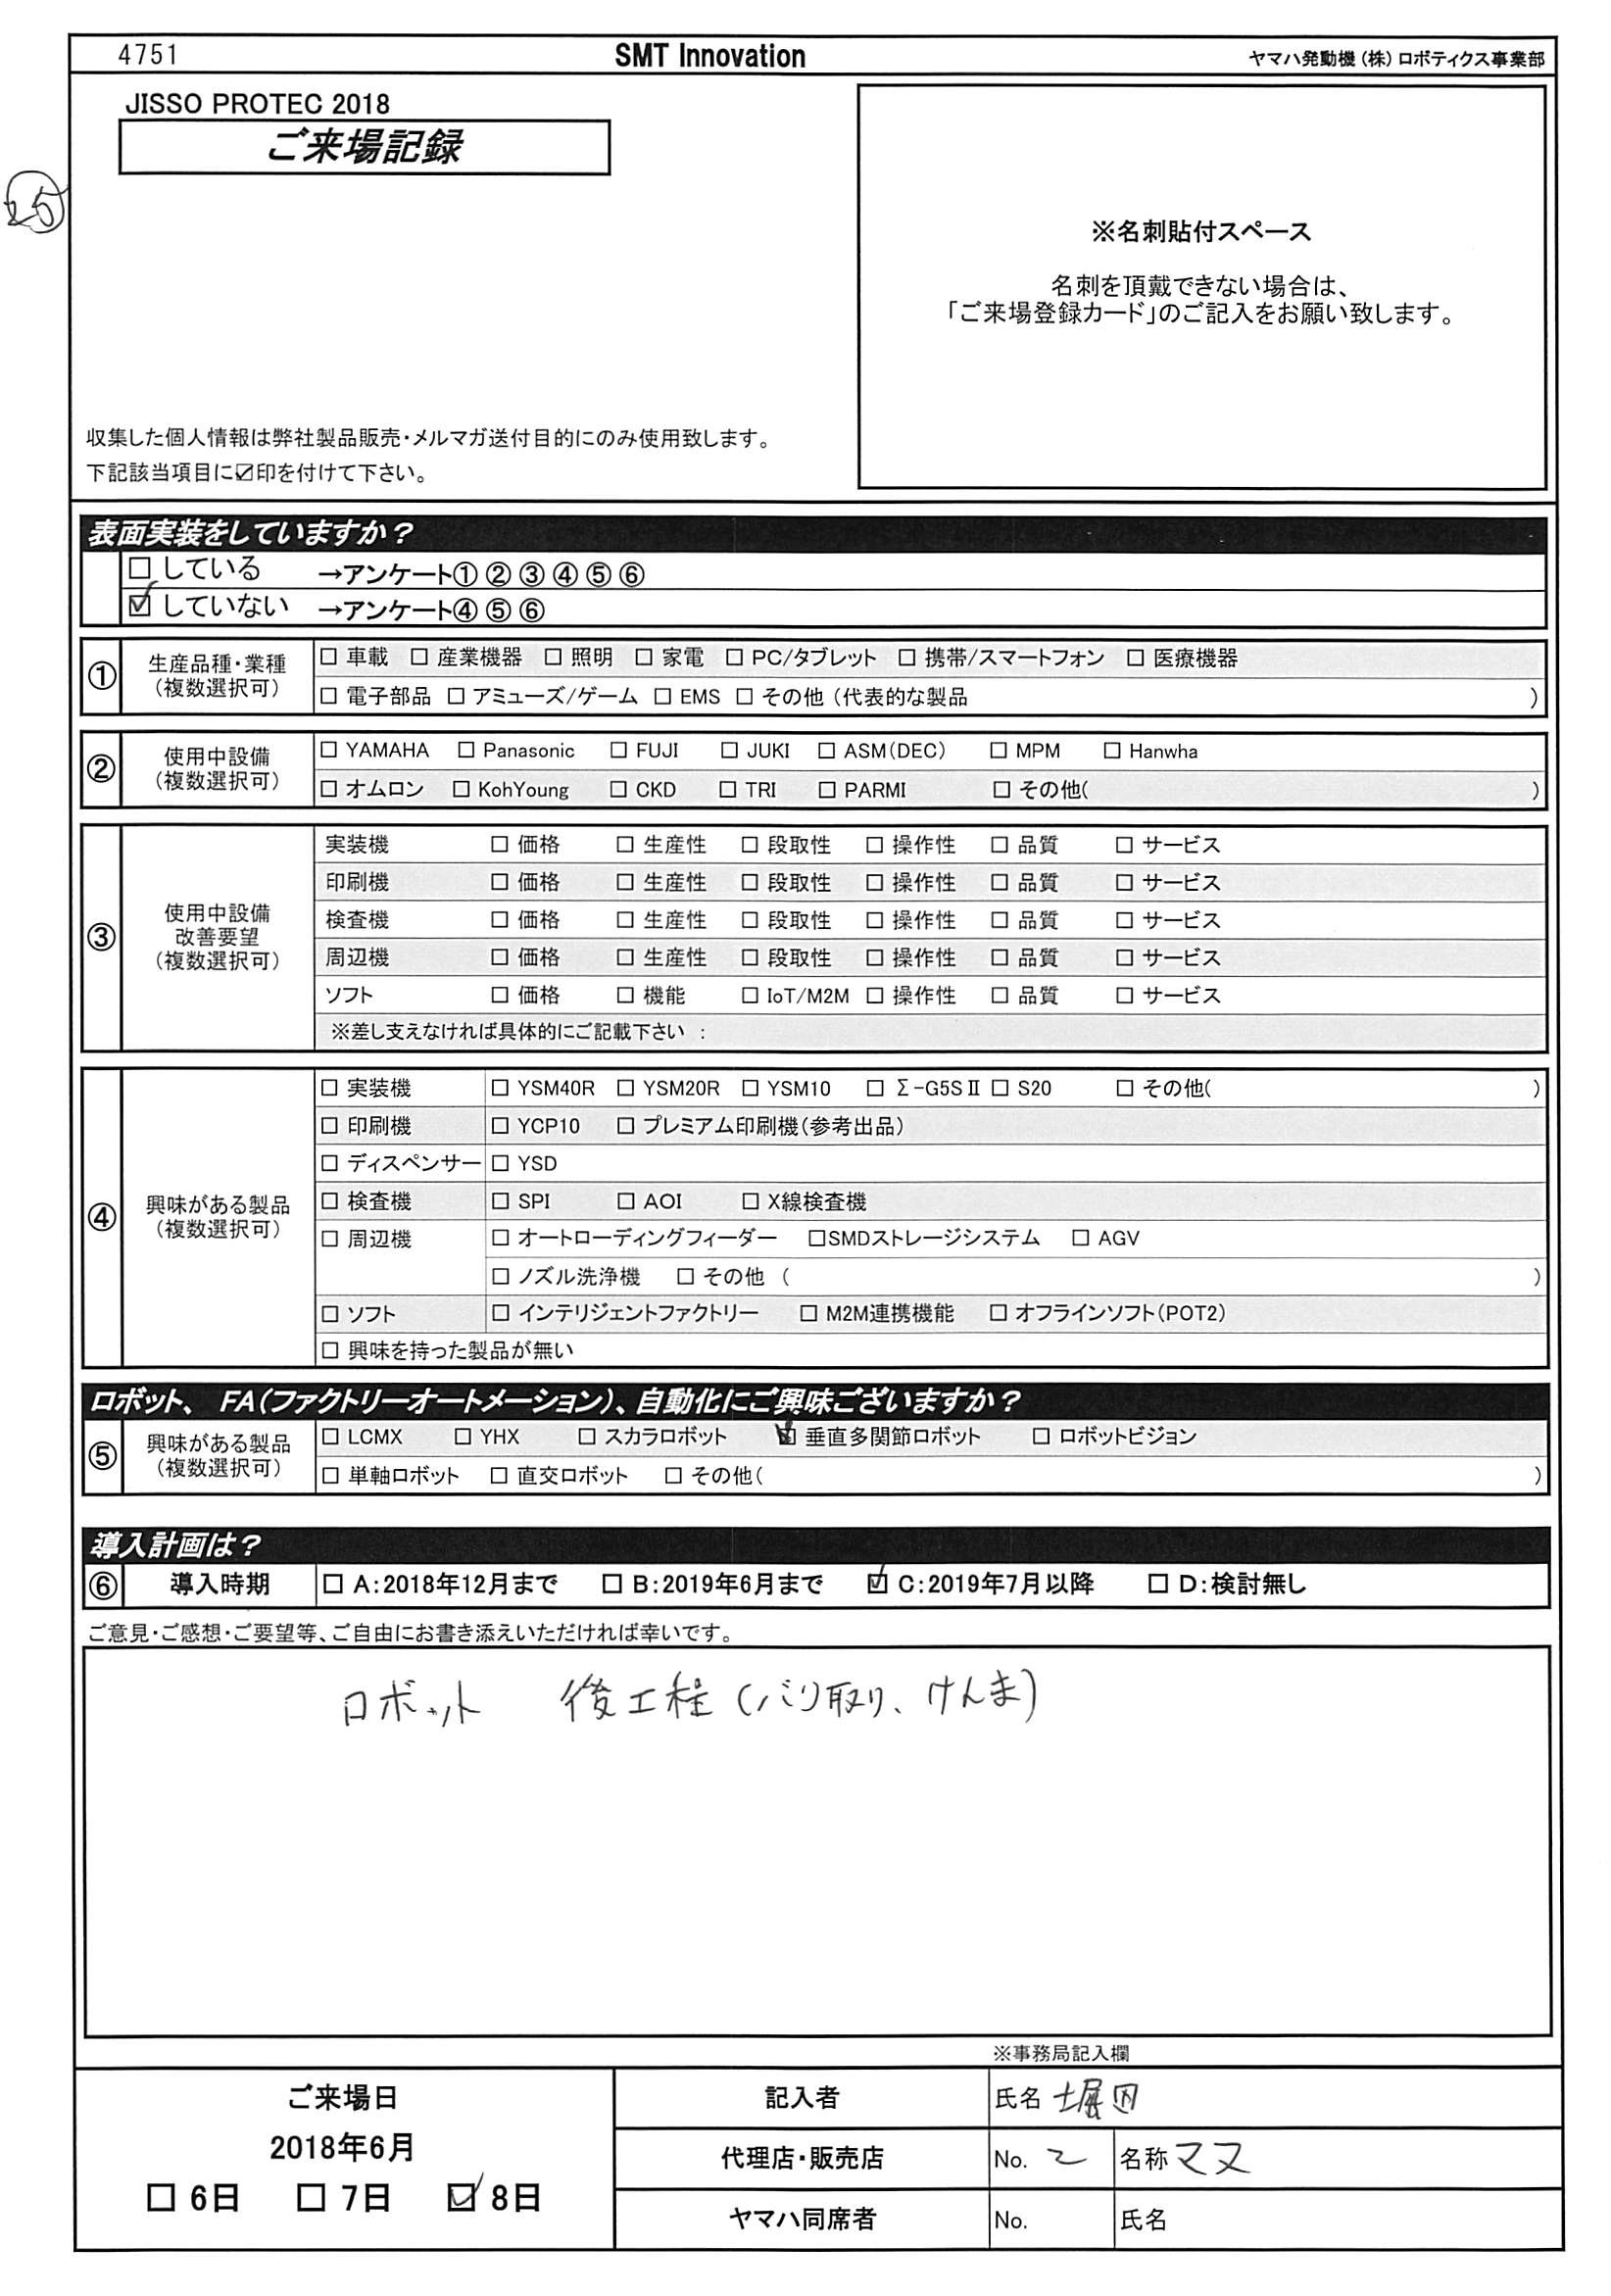 4751 SMT Innovation ヤマハ発動機(株)ロボティクス事業部
JISSO PROTEC 2018
ご来場記録
25
※名刺貼付スペース
名刺を頂戴できない場合は、
「ご来場登録カード」のご記入をお願い致します。
収集した個人情報は弊社製品販売・メルマガ送付目的にのみ使用致します。
下記該当項目に☑印を付けて下さい。
表面実装をしていますか？
□ している →アンケート① ② ③ ④ ⑤ ⑥
☑ していない →アンケート④ ⑤ ⑥
① 生産品種・業種 (複数選択可)
□ 車載 □ 産業機器 □ 照明 □ 家電 □ PC/タブレット □ 携帯/スマートフォン □ 医療機器
□ 電子部品 □ アミューズ/ゲーム □ EMS □ その他 (代表的な製品 )
② 使用中設備 (複数選択可)
□ YAMAHA □ Panasonic □ FUJI □ JUKI □ ASM(DEC) □ MPM □ Hanwha
□ オムロン □ KohYoung □ CKD □ TRI □ PARMI □ その他( )
③ 使用中設備 改善要望 (複数選択可)
実装機 □ 価格 □ 生産性 □ 段取性 □ 操作性 □ 品質 □ サービス
印刷機 □ 価格 □ 生産性 □ 段取性 □ 操作性 □ 品質 □ サービス
検査機 □ 価格 □ 生産性 □ 段取性 □ 操作性 □ 品質 □ サービス
周辺機 □ 価格 □ 生産性 □ 段取性 □ 操作性 □ 品質 □ サービス
ソフト □ 価格 □ 機能 □ IoT/M2M □ 操作性 □ 品質 □ サービス
※差し支えなければ具体的にご記載下さい :
④ 興味がある製品 (複数選択可)
□ 実装機 □ YSM40R □ YSM20R □ YSM10 □ Σ-G5SⅡ □ S20 □ その他( )
□ 印刷機 □ YCP10 □ プレミアム印刷機(参考出品)
□ ディスペンサー □ YSD
□ 検査機 □ SPI □ AOI □ X線検査機
□ 周辺機 □ オートローディングフィーダー □SMDストレージシステム □ AGV
□ ノズル洗浄機 □ その他 ( )
□ ソフト □ インテリジェントファクトリー □ M2M連携機能 □ オフラインソフト(POT2)
□ 興味を持った製品が無い
ロボット、 FA(ファクトリーオートメーション)、自動化にご興味ございますか？
⑤ 興味がある製品 (複数選択可)
□ LCMX □ YHX □ スカラロボット ☑ 垂直多関節ロボット □ ロボットビジョン
□ 単軸ロボット □ 直交ロボット □ その他( )
導入計画は？
⑥ 導入時期 □ A:2018年12月まで □ B:2019年6月まで ☑ C:2019年7月以降 □ D:検討無し
ご意見・ご感想・ご要望等、ご自由にお書き添えいただければ幸いです。
ロボット 後工程(バリ取り、けんま)
※事務局記入欄
ご来場日
2018年6月
□ 6日 □ 7日 ☑ 8日
記入者 氏名 堀田
代理店・販売店 No. 2 名称 マヌ
ヤマハ同席者 No. 氏名